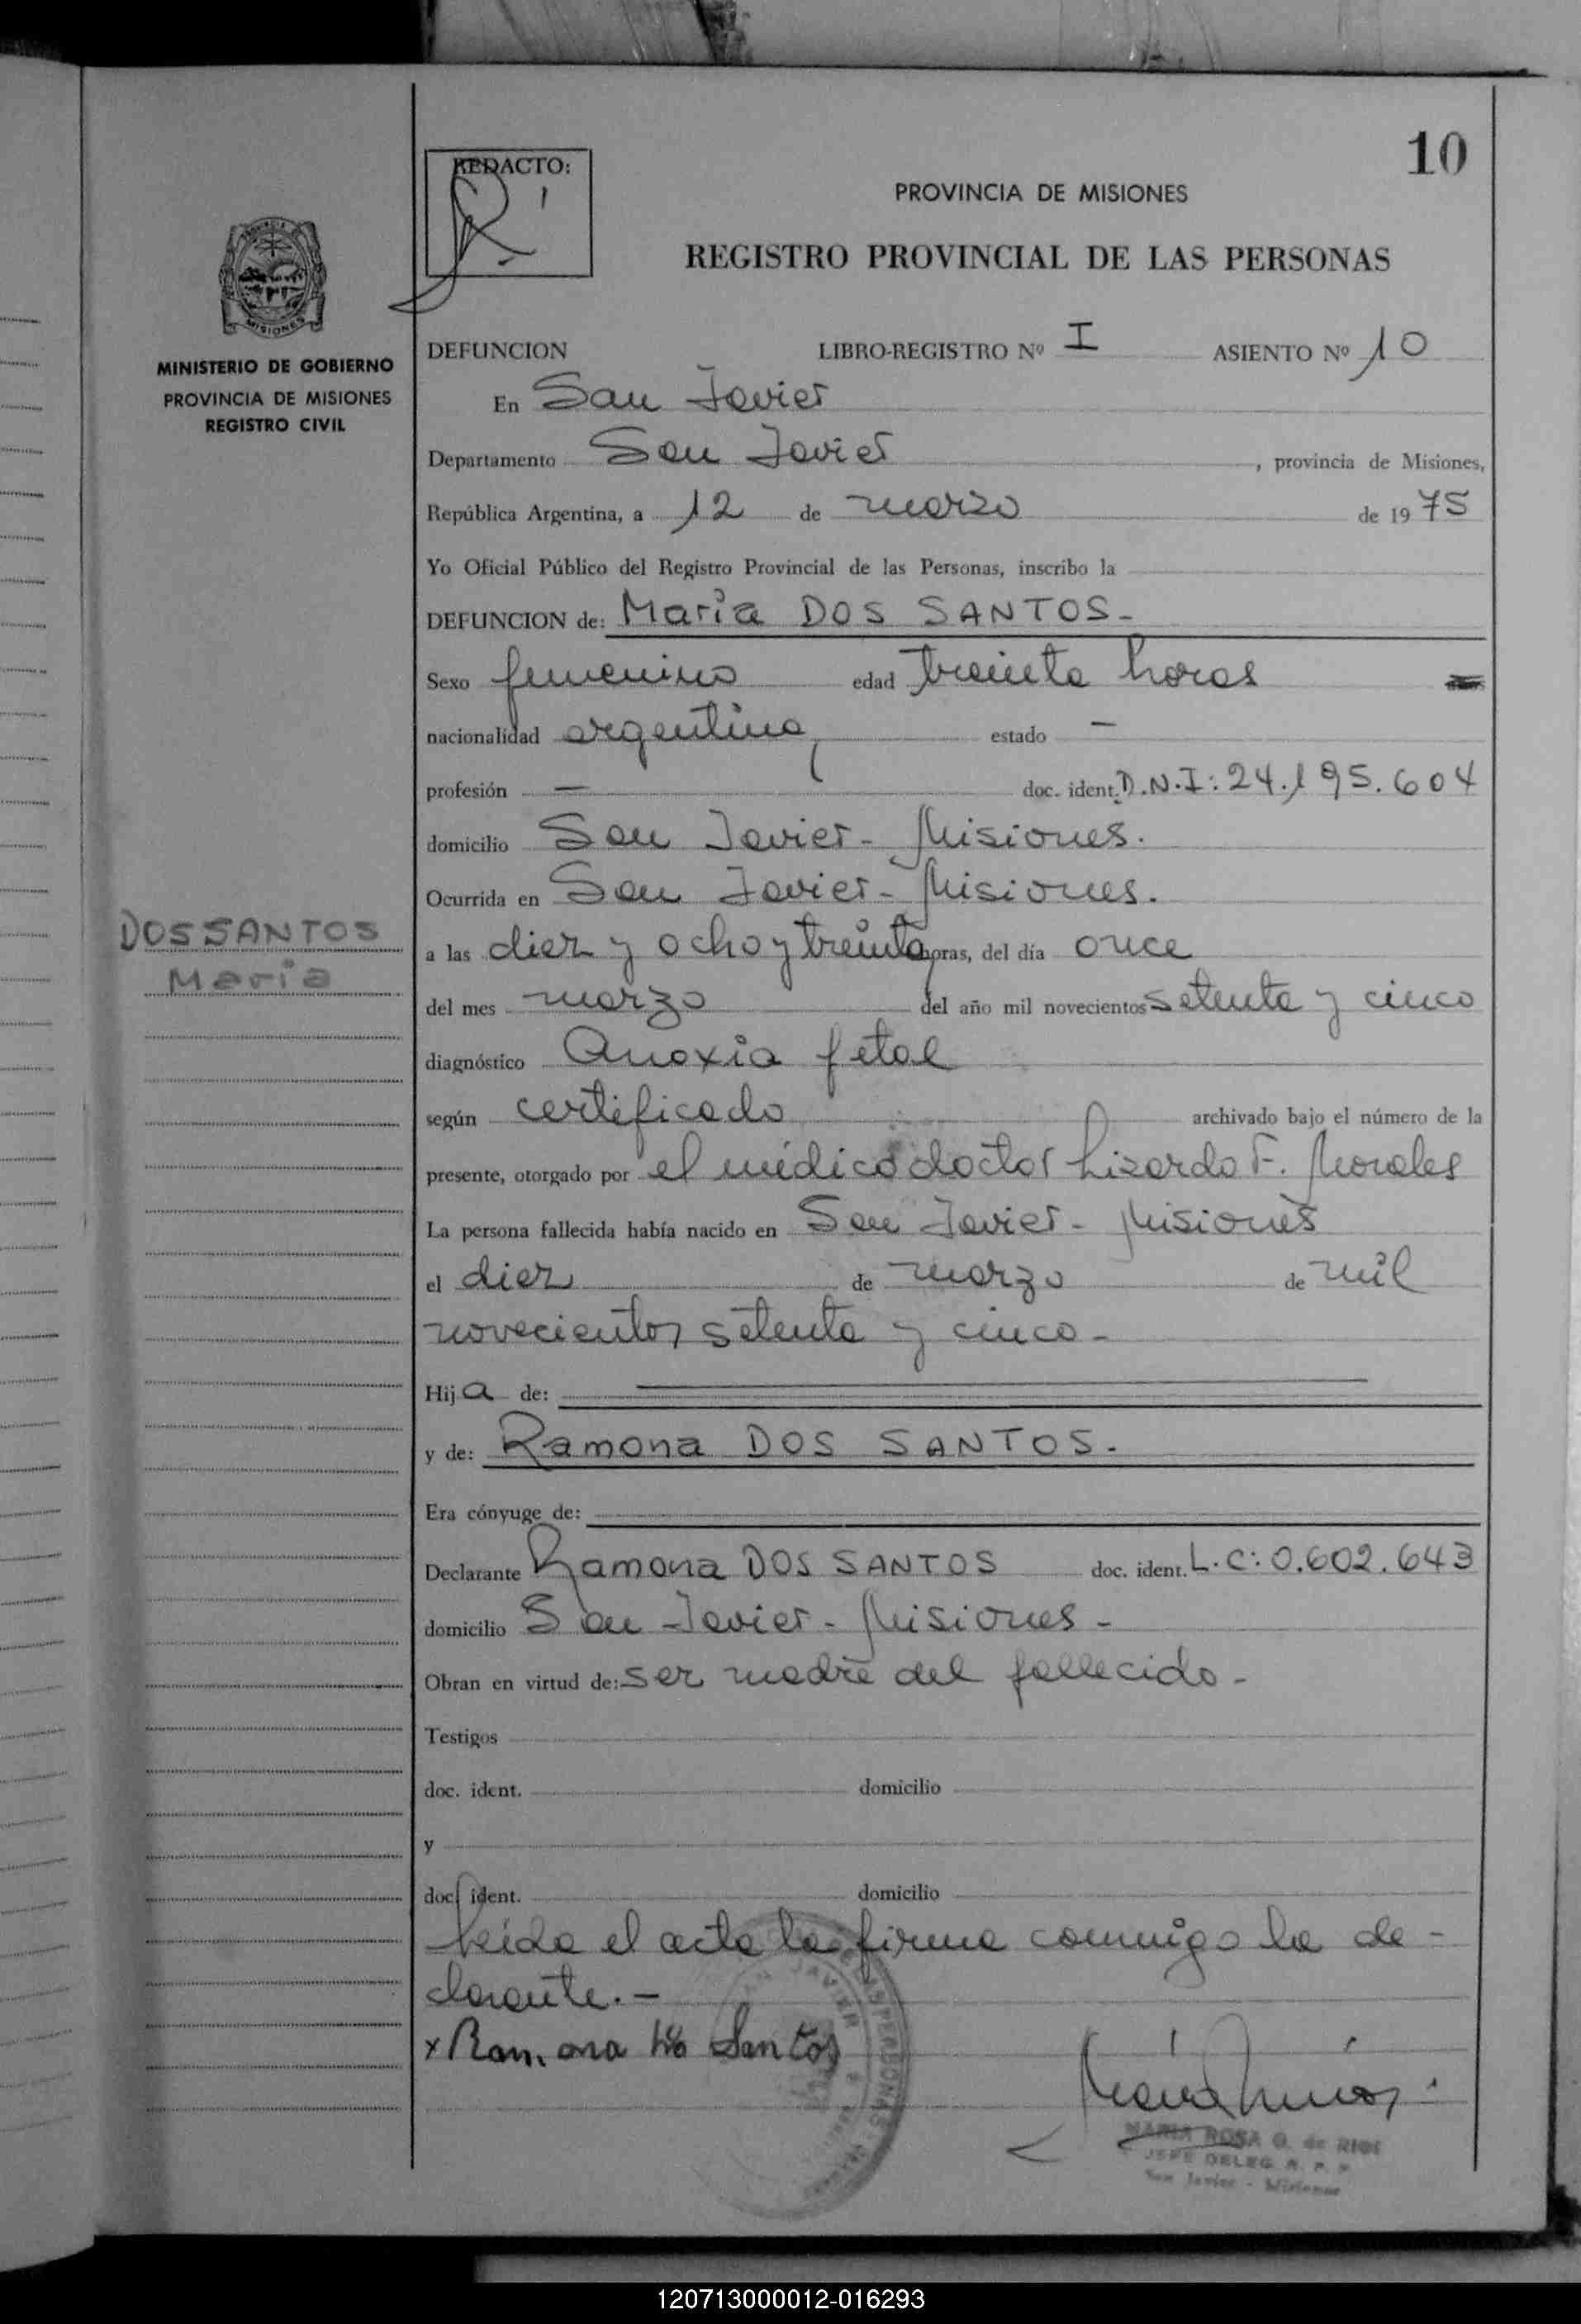 10
REDACTO:
PROVINCIA DE MISIONES
REGISTRO PROVINCIAL DE LAS PERSONAS
MISIONES
MINISTERIO DE GOBIERNO
PROVINCIA DE MISIONES
REGISTRO CIVIL
DEFUNCION LIBRO-REGISTRO Nº I ASIENTO Nº 10
En San Javier
Departamento San Javier, provincia de Misiones,
República Argentina, a 12 de marzo de 1975
Yo Oficial Público del Registro Provincial de las Personas, inscribo la
DEFUNCION de: Maria DOS SANTOS-
Sexo femenino edad treinta horas
nacionalidad argentina, estado —
profesión — doc. ident. D.N.I: 24.195.604
domicilio San Javier- Misiones.
Ocurrida en San Javier- Misiones.
DOS SANTOS
Maria
a las diez y ocho y treinta horas, del día once
del mes marzo del año mil novecientos setenta y cinco
diagnóstico Anoxia fetal
según certificado archivado bajo el número de la
presente, otorgado por el médico doctor Lizardo F. Morales
La persona fallecida había nacido en San Javier- Misiones
el diez de marzo de mil
novecientos setenta y cinco-
Hija de:
y de: Ramona DOS SANTOS.
Era cónyuge de:
Declarante Ramona DOS SANTOS doc. ident. L.C: 0.602.643
domicilio San Javier- Misiones-
Obran en virtud de: ser madre del fallecido-
Testigos
doc. ident. domicilio
y
doc. ident. domicilio
Leida el acta la firma conmigo la de-
clarante.-
x Ramona Santos
MARIA ROSA G. de RIOS
JEFE DELEG. R. P. P.
San Javier - Misiones
120713000012-016293